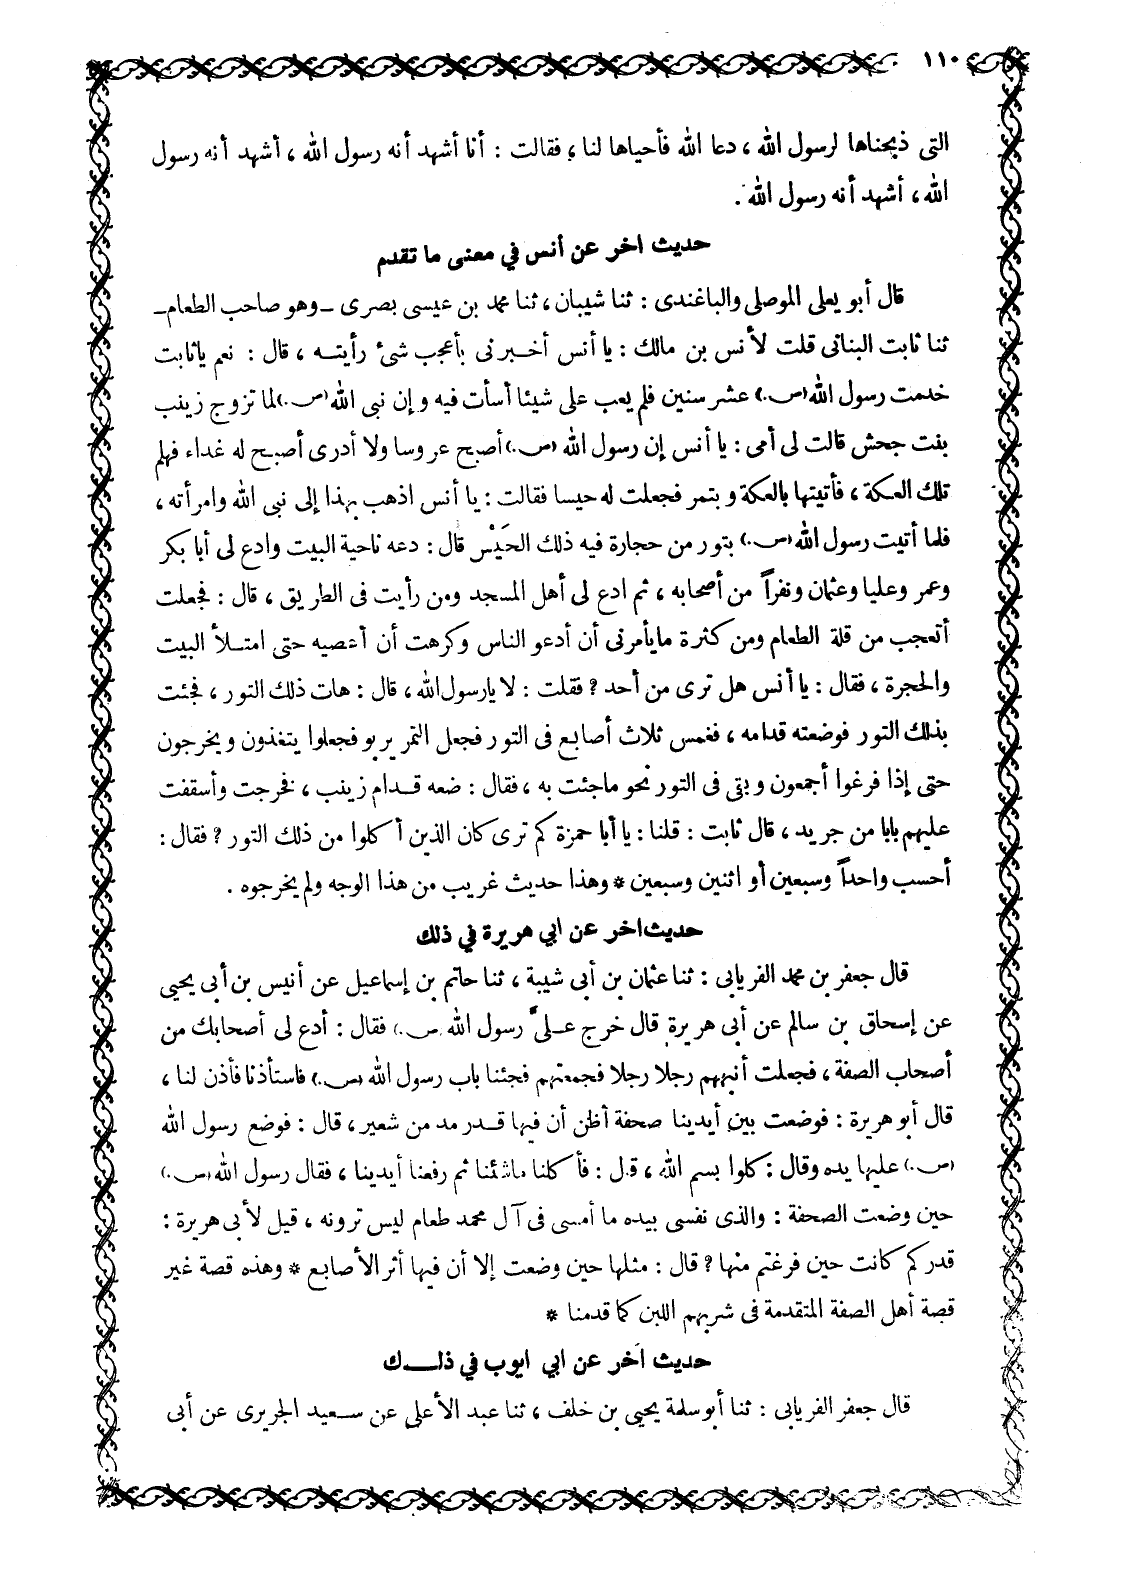 ١١٠
التى ذبحناها لرسول الله ، دعا الله فأحياها لنا ، فقالت : أنا أشهد أنه رسول الله ، أشهد أنه رسول
الله ، أشهد أنه رسول الله .
حديث اخر عن أنس في معنى ما تقدم
قال أبو يعلى الموصلى والباغندى : ثنا شيبان ، ثنا محمد بن عيسى بصرى ــ وهو صاحب الطعام ــ
ثنا ثابت البنانى قلت لأنس بن مالك : يا أنس أخبرنى بأعجب شئ رأيته ، قال : نعم ياثابت
خدمت رسول الله (ص.) عشر سنين فلم يعب على شيئا أسأت فيه وإن نبى الله (ص.) لما تزوج زينب
بنت جحش قالت لى أمى : يا أنس إن رسول الله (ص.) أصبح عروسا ولا أدرى أصبح له غداء فهلم
تلك العكة ، فأتيتها بالعكة وبتمر فجعلت له حيسا فقالت : يا أنس اذهب بهذا إلى نبى الله وامرأته ،
فلما أتيت رسول الله (ص.) بتور من حجارة فيه ذلك الحَيْس قال : دعه ناحية البيت وادع لى أبا بكر
وعمر وعليا وعثمان ونفراً من أصحابه ، ثم ادع لى أهل المسجد ومن رأيت فى الطريق ، قال : فجعلت
أتعجب من قلة الطعام ومن كثرة مايأمرنى أن أدعو الناس وكرهت أن أعصيه حتى امتلأ البيت
والحجرة ، فقال : يا أنس هل ترى من أحد ؟ فقلت : لا يارسول الله ، قال : هات ذلك التور ، فجئت
بذلك التور فوضعته قدامه ، فغمس ثلاث أصابع فى التور فجعل التمر يربو فجعلوا يتغذون ويخرجون
حتى إذا فرغوا أجمعون وبقى فى التور نحو ماجئت به ، فقال : ضعه قدام زينب ، فخرجت وأسقفت
عليهم بابا من جريد ، قال ثابت : قلنا : يا أبا حمزة كم ترى كان الذين أكلوا من ذلك التور ؟ فقال :
أحسب واحداً وسبعين أو اثنين وسبعين * وهذا حديث غريب من هذا الوجه ولم يخرجوه .
حديث اخر عن ابي هريرة في ذلك
قال جعفر بن محمد الفريابى : ثنا عثمان بن أبى شيبة ، ثنا حاتم بن إسماعيل عن أنيس بن أبى يحيى
عن إسحاق بن سالم عن أبى هريرة قال خرج علىَّ رسول الله (ص.) فقال : أدع لى أصحابك من
أصحاب الصفة ، فجعلت أنبههم رجلا رجلا فجمعتهم فجئنا باب رسول الله (ص.) فاستأذنا فأذن لنا ،
قال أبو هريرة : فوضعت بين أيدينا صحفة أظن أن فيها قدر مد من شعير ، قال : فوضع رسول الله
(ص.) عليها يده وقال : كلوا بسم الله ، قال : فأكلنا ماشئنا ثم رفعنا أيدينا ، فقال رسول الله (ص.)
حين وضعت الصحفة : والذى نفسى بيده ما أمسى فى آل محمد طعام ليس ترونه ، قيل لأبى هريرة :
قدركم كانت حين فرغتم منها ؟ قال : مثلها حين وضعت إلا أن فيها أثر الأصابع * وهذه قصة غير
قصة أهل الصفة المتقدمة فى شربهم اللبن كما قدمنا *
حديث آخر عن ابي ايوب في ذلــك
قال جعفر الفريابى : ثنا أبو سلمة يحيى بن خلف ، ثنا عبد الأعلى عن سعيد الجريرى عن أبى